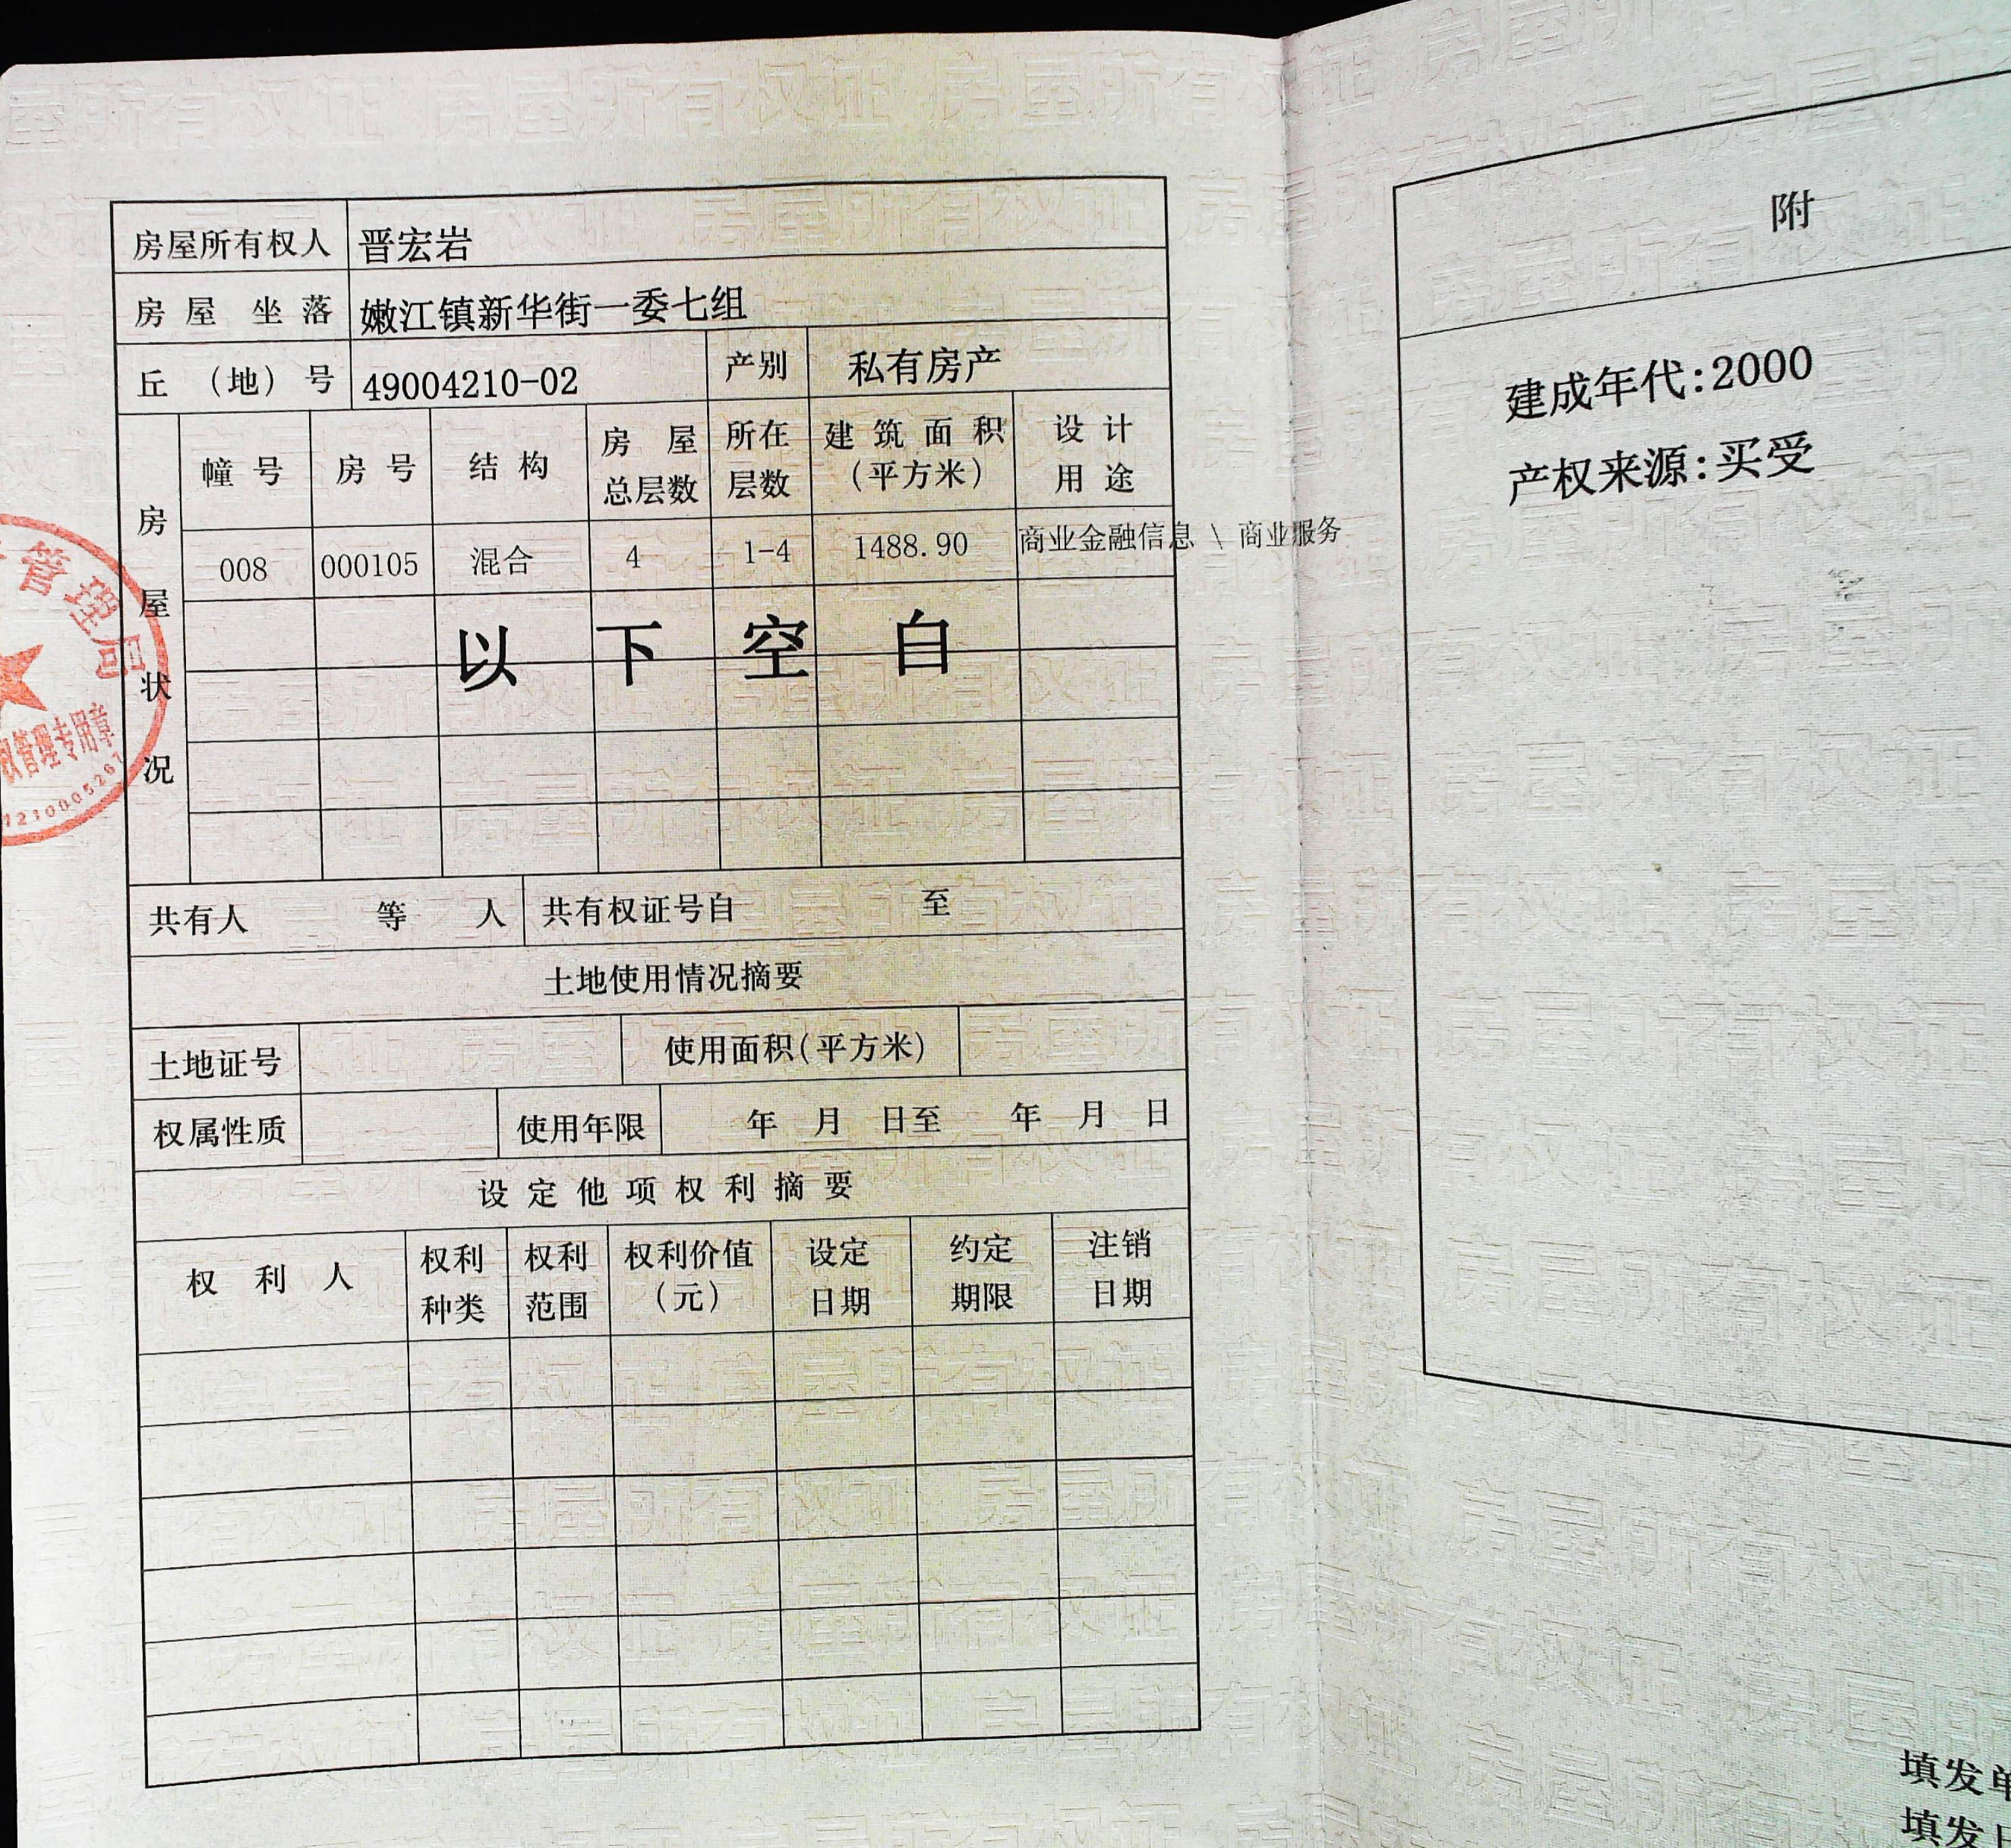 房屋所有权人 晋宏岩
房屋坐落 嫩江镇新华街一委七组
丘（地）号 49004210-02 产别 私有房产
房屋状况
幢号 房号 结构 房屋总层数 所在层数 建筑面积（平方米） 设计用途
008 000105 混合 4 1-4 1488.90 商业金融信息 \ 商业服务
以下空白
共有人 等 人 共有权证号自 至
土地使用情况摘要
土地证号 使用面积(平方米)
权属性质 使用年限 年 月 日至 年 月 日
设定他项权利摘要
权利人 权利种类 权利范围 权利价值（元） 设定日期 约定期限 注销日期
管理局
管理专用章
附
建成年代:2000
产权来源:买受
填发单
填发